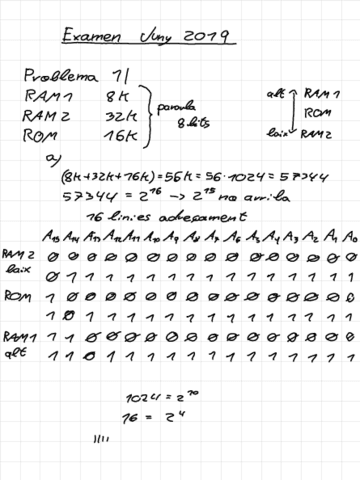 Examen Juny 2019
Problema 1|
RAM1 8k
RAM2 32k
ROM 16k
paraula
8 bits
alt RAM1
ROM
baix RAM2
a)
(8k+32k+16k)=56k=56·1024=57344
57344 = 2^16 → 2^15 no arriba
16 linies adreçament
A15 A14 A13 A12 A11 A10 A9 A8 A7 A6 A5 A4 A3 A2 A1 A0
RAM2 0 0 0 0 0 0 0 0 0 0 0 0 0 0 0 0
baix 0 1 1 1 1 1 1 1 1 1 1 1 1 1 1 1
ROM 1 0 0 0 0 0 0 0 0 0 0 0 0 0 0 0
1 0 1 1 1 1 1 1 1 1 1 1 1 1 1 1
RAM1 1 1 0 0 0 0 0 0 0 0 0 0 0 0 0 0
alt 1 1 0 1 1 1 1 1 1 1 1 1 1 1 1 1
1024 = 2^10
16 = 2^4